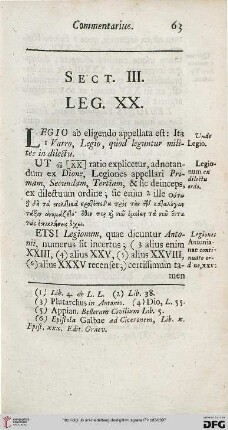 Commentarius. 63
SECT. III.
LEG. XX.
LEGIO ab eligendo appellata est: Ita
1 Varro, Legio, quod leguntur mili-
tes in dilectu.
Unde
Legio.
UT ratio explicetur, adnotan-
dum ex Dione, Legiones appellari Pri-
mam, Secundam, Tertiam, & sic deinceps,
ex dilectuum ordine; sic enim 2 ille
Legio-
num ex
dilectu
ordo.
ETSI Legionum, quae dicuntur Anto-
nii, numerus sit incertus; (3 alius enim
XXIII, (4) alius XXV, (5) alius XXVIII,
(6) alius XXXV recenset;) certissimum ta-
men
Legiones
Antonia-
nae conti-
nuato or-
(1) Lib. 4. de L. L. (2) Lib. 38.
(3) Plutarchus in Antonio. (4) Dio, L. 55.
(5) Appian. Bellorum Civilium Lib. 5.
(6) Epistola Galbae ad Ciceronem, Lib. x.
Epist. xxx. Edit. Graev.
DFG